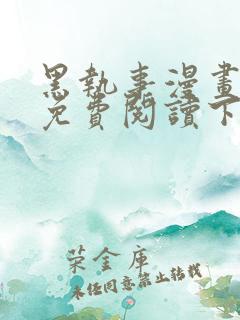 黑執事漫畫
免費閱讀下
荣金库
未经同意禁止转载